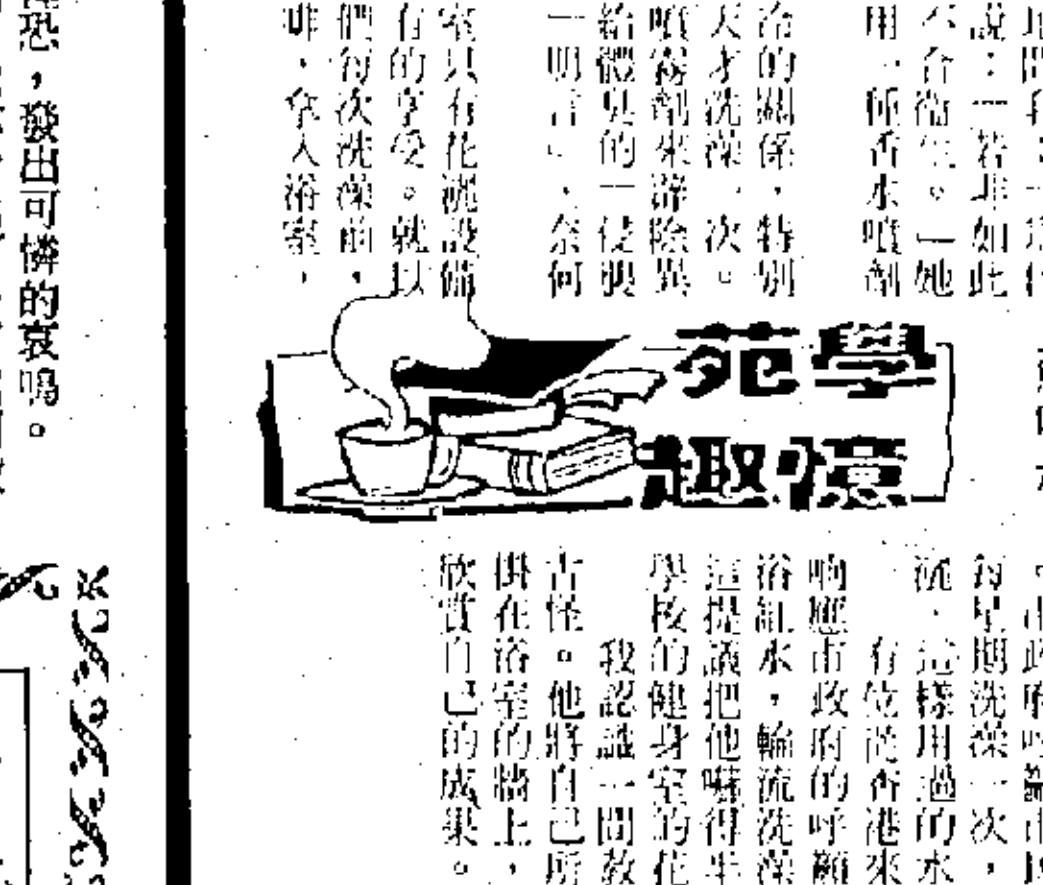 說：「若非如此
不合衛生。」她
用一種香水噴劑
冷的關係，特別
天才洗澡一次。
噴霧劑來辟除異
給體臭的「侵襲
明言」，奈何
室只有花洒設備
有的享受。就以
們每次洗澡前，
啡，拿入浴室，
學苑
憶趣
每星期洗澡一次，
流，這樣用過的水
有位從香港來
响應市政府的呼籲
浴缸水，輪流洗澡
這提議把他嚇得半
學校的健身室的花
我認識一間教
古怪。他將自己所
掛在浴室的牆上，
欣賞自己的成果。
恐，發出可憐的哀鳴。